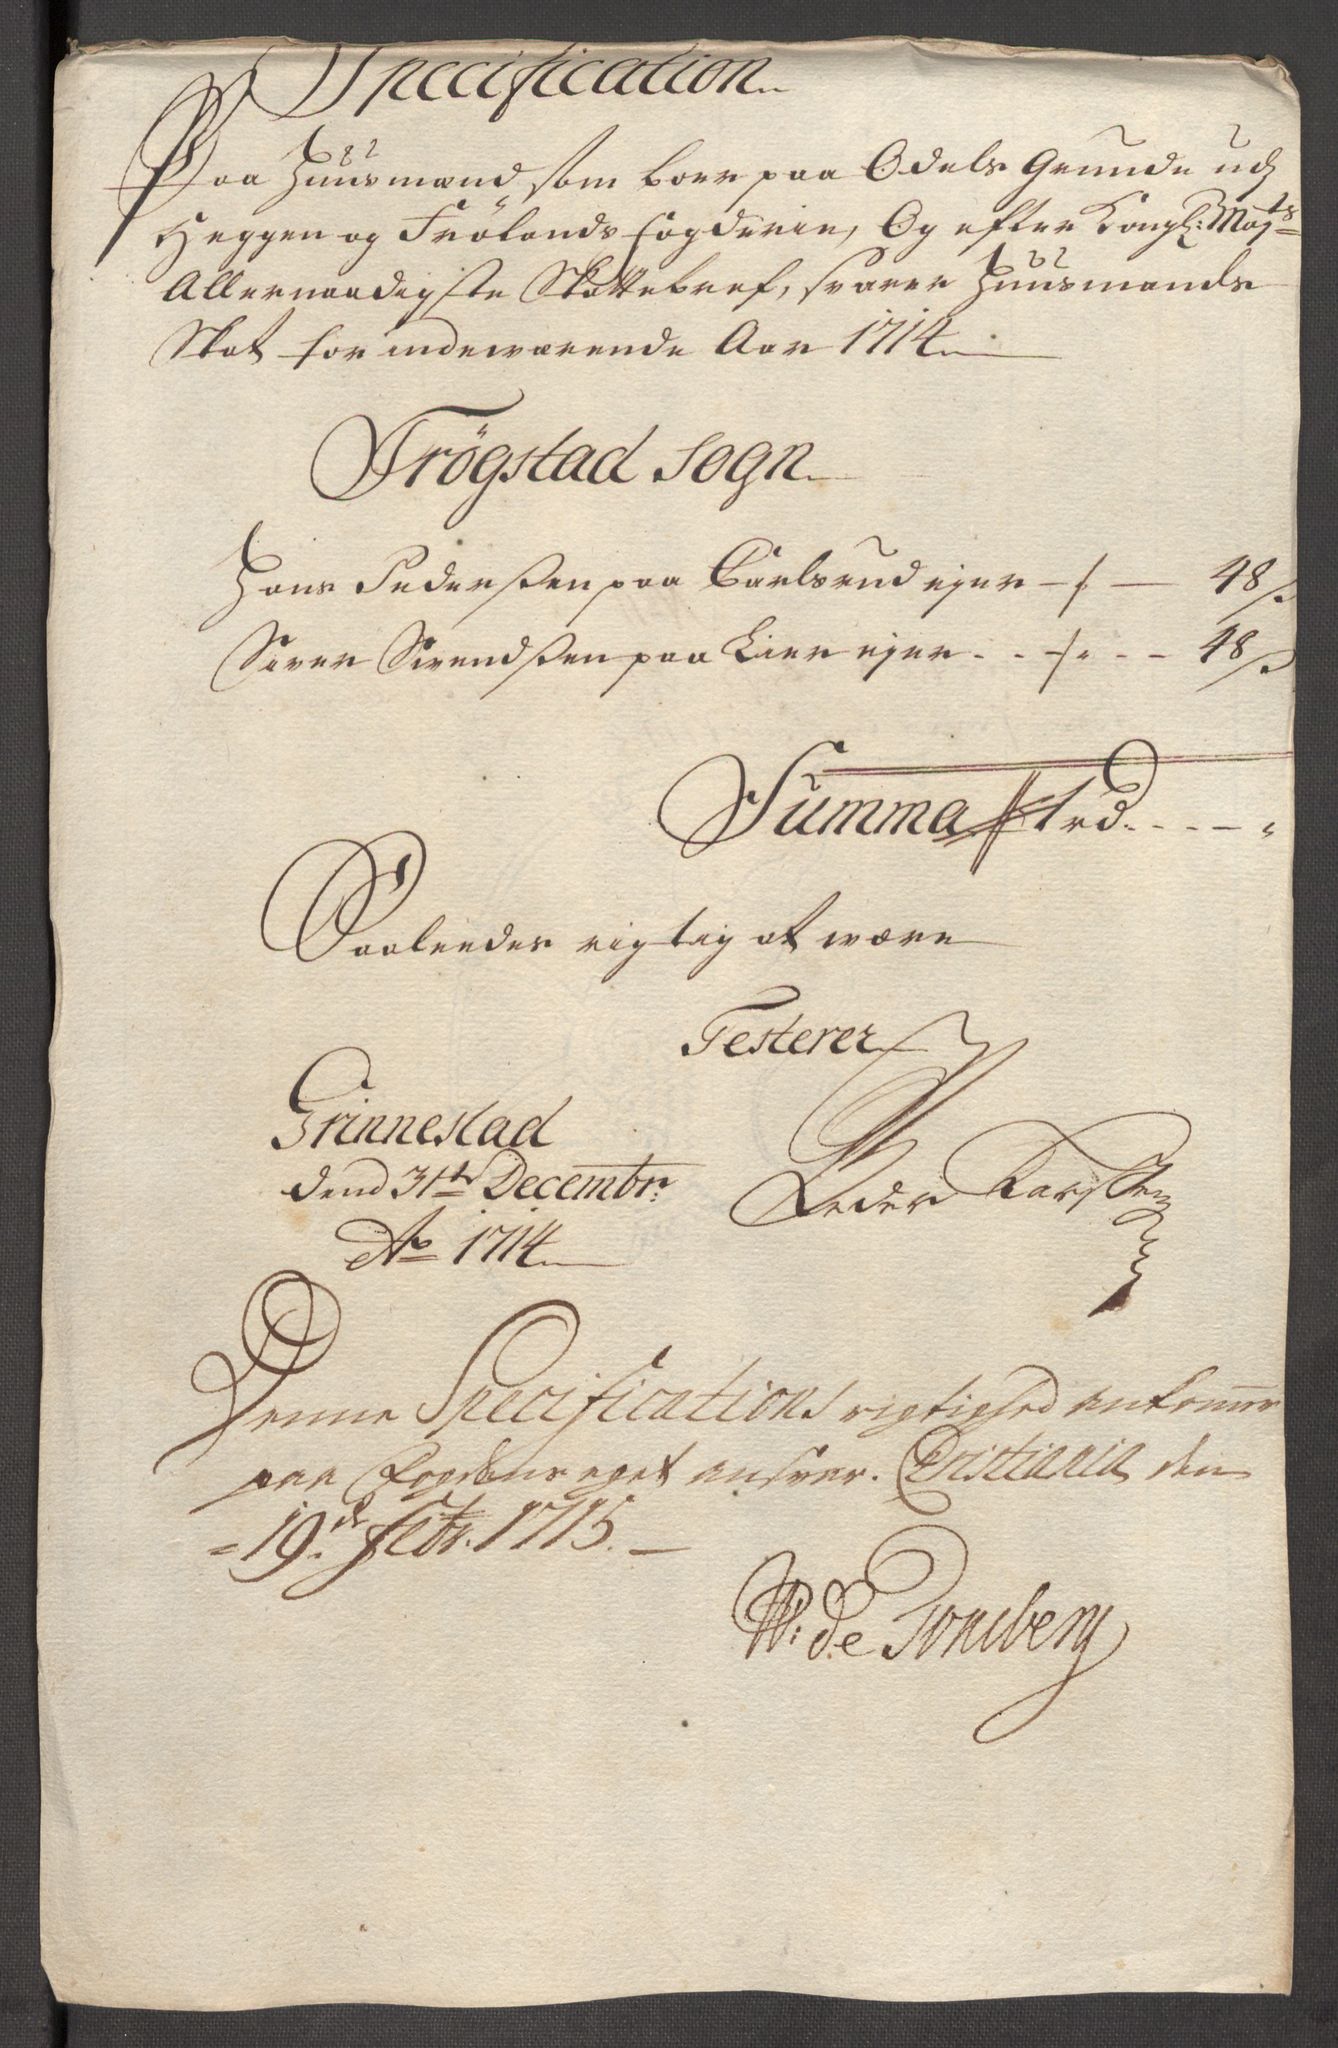 Specification
Paa Huusmænd som boer paa Odels Grunde udj
Heggen og Frölands fogderie, Og efter Kongl: Mayts
Allernaadigste Skattebref, svarer Huusmands
Skat for indeværende Aar 1714
Trögstad Sogn
Hans Pederßen paa Carlsrud ejer - / - 48 ß
Siver Sivendßen paa Lier ejer - - / - - 48 ß
Summa 1 rd - - - -
Saaleedes rigtig at være
Testerer
Grinnestad
dend 31te Decembr:
Ao 1714
Peder Karssten
Denne Specifications rigtighed ankommer
paa Fogdens eget ansvar. Cristiania den
19de Febr. 1715.
W: de Tonsberg